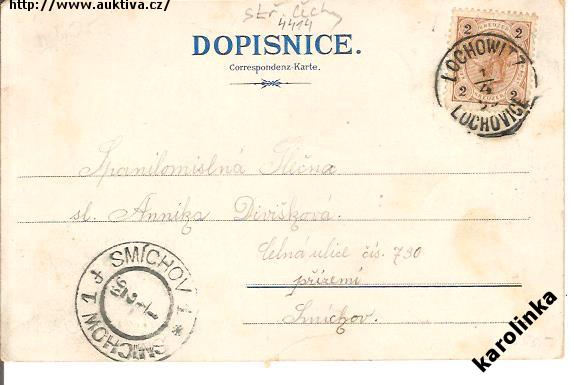 http://www.auktiva.cz/
Stř. Čechy
4414
DOPISNICE.
Correspondenz-Karte.
2 KREUZER 2
2 2
LOCHOWITZ
LOCHOVICE
Spanilomislná Slečna
sl. Annika Divišková.
Celná ulice čís. 730
přízemí
Smíchov.
SMÍCHOV 1
SMICHOW 1
karolinka